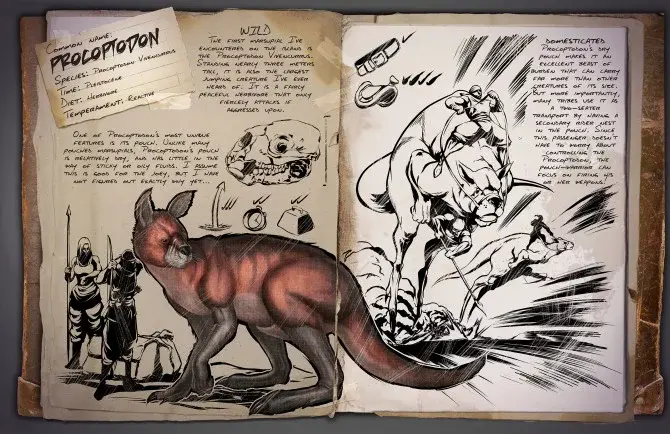 Common name:
Procoptodon
Species: Procoptodon Vivencurrus
Time: Pleistocene
Diet: Herbivore
Temperament: Reactive
Wild
The first marsupial I've
encountered on the island is
the Procoptodon Vivencurrus.
Standing nearly three meters
tall, it is also the largest
jumping creature I've ever
heard of. It is a fairly
peaceful herbivore that only
fiercely attacks if
aggressed upon.
One of Procoptodon's most unique
features is its pouch. Unlike many
pouched marsupials, Procoptodon's pouch
is relatively dry, and has little in the
way of sticky or oily fluids. I assume
this is good for the joey, but I have
not figured out exactly why yet...
Domesticated
Procoptodon's dry
pouch makes it an
excellent beast of
burden that can carry
far more than other
creatures of its size.
But more importantly,
many tribes use it is
a two-seater
transport by having a
secondary rider nest
in the pouch. Since
this passenger doesn't
have to worry about
controlling the
Procoptodon, the
pouch-warrior can
focus on firing his
or her weapons!